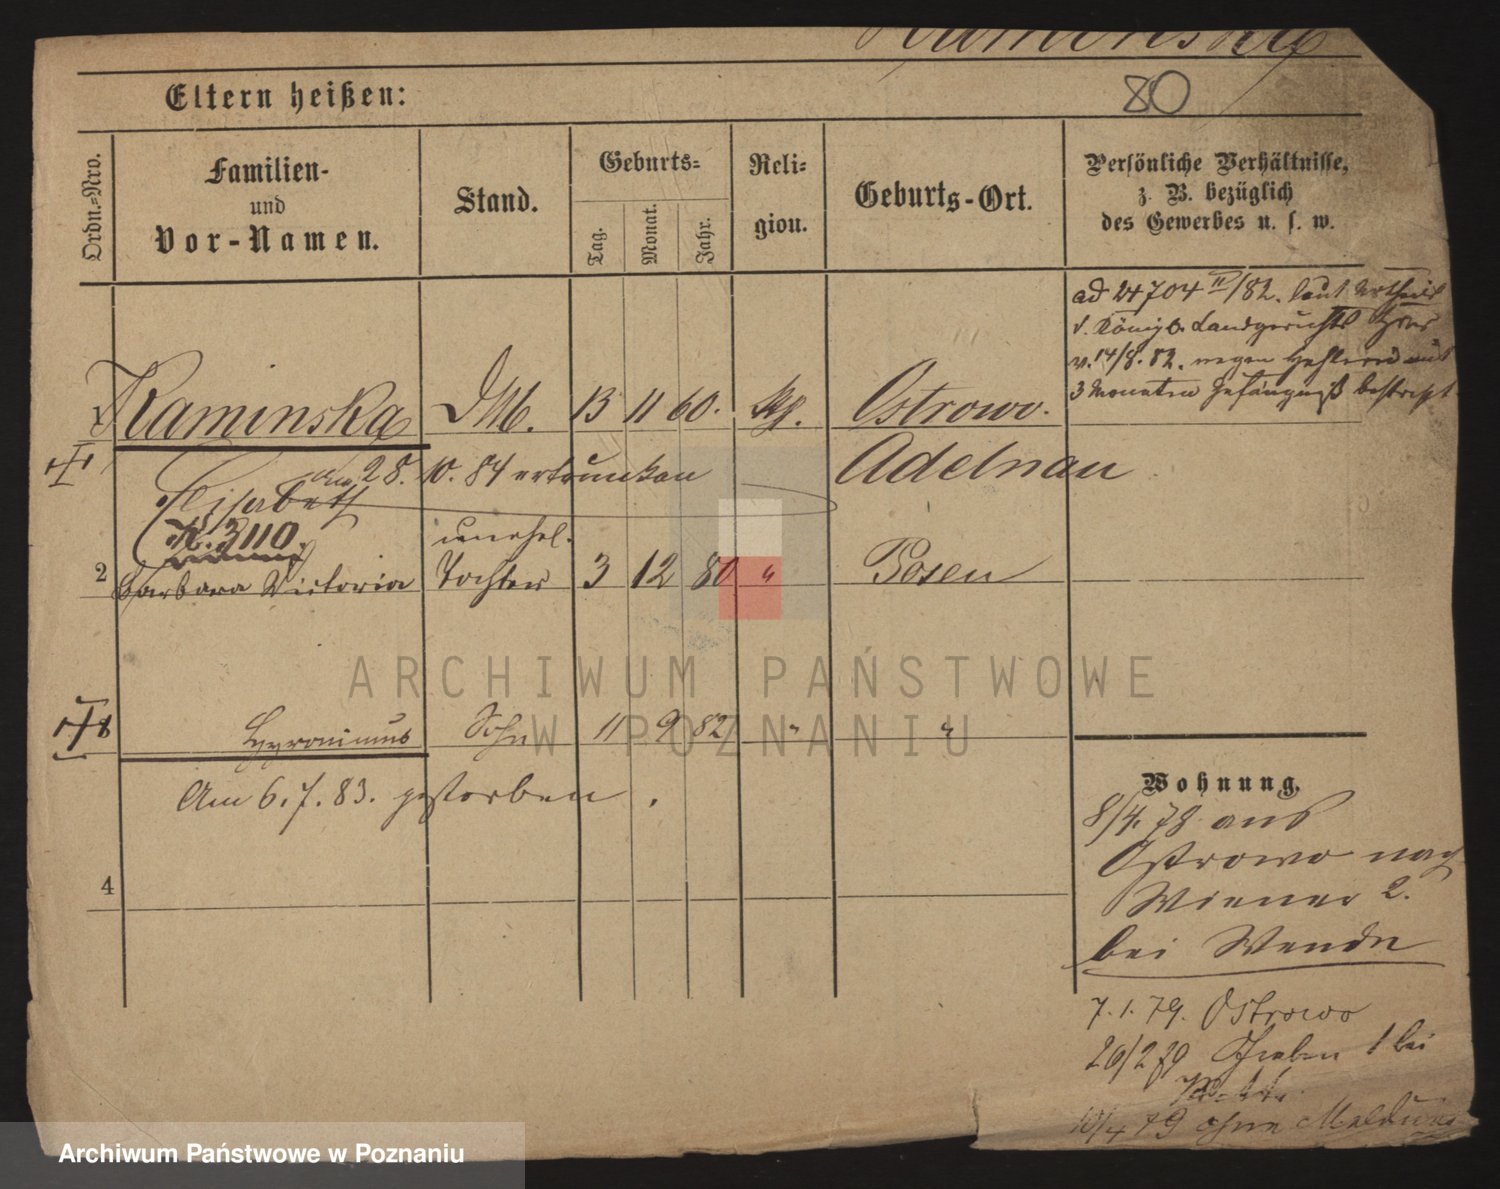 Kaminska
80
Eltern heißen:
Ordn.-Nro.
Familien-
und
Vor-Namen.
Stand.
Geburts-
Tag.
Monat.
Jahr.
Reli-
gion.
Geburts-Ort.
Persönliche Verhältnisse,
z. B. bezüglich
des Gewerbes u. s. w.
ad 24704 II/82. laut Urtheils
d. Königl. Landgerichts hier
v. 14/8. 82. wegen Hehlerei mit
3 Monaten Gefängniß bestraft.
1 Kaminska DM. 13 11 60. kth. Ostrowo.
Adelnau
am 28. 10. 84 ertrunken
Elisabeth
N. 3110.
unehel.
2 Barbara Victoria Tochter 3 12 80 " Posen
Hyronimus Sohn 11 9 82 " "
Am 6. 7. 83. gestorben.
4
Wohnung.
8/4. 78 aus
Ostrowo nach
Wiener 2.
bei Wende
7. 1. 79. Ostrowo
26/2 79 1 bei
10/4 79 ohne Meldung
ARCHIWUM PAŃSTWOWE
W POZNANIU
Archiwum Państwowe w Poznaniu